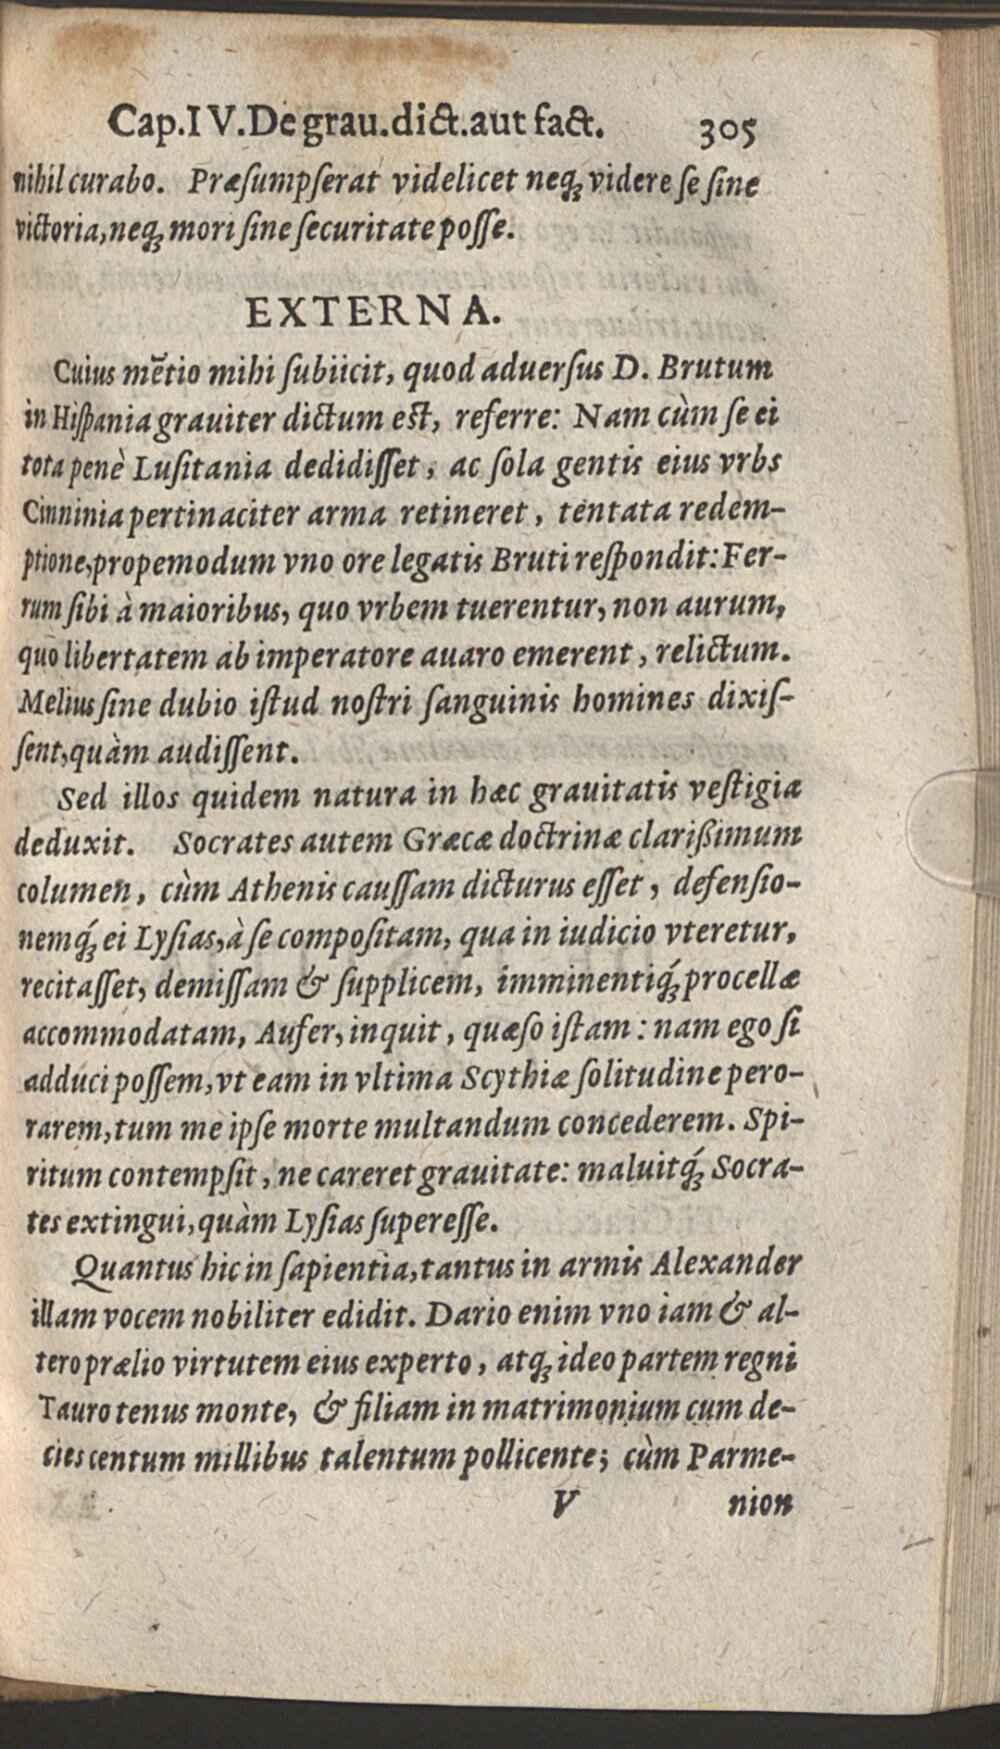 Cap. IV. De grau. dict. aut fact. 305
nihil curabo. Præſumpſerat videlicet neqꝫ videre ſe ſine
victoria, neqꝫ mori ſine ſecuritate poſſe.
EXTERNA.
Cuius mētio mihi ſubiicit, quod aduerſus D. Brutum
in Hiſpania grauiter dictum eſt, referre: Nam cùm ſe ei
tota penè Luſitania dedidiſſet, ac ſola gentis eius vrbs
Cinninia pertinaciter arma retineret, tentata redem-
ptione, propemodum vno ore legatis Bruti reſpondit: Fer-
rum ſibi à maioribus, quo vrbem tuerentur, non aurum,
quo libertatem ab imperatore auaro emerent, relictum.
Melius ſine dubio iſtud noſtri ſanguinis homines dixiſ-
ſent, quàm audiſſent.
Sed illos quidem natura in hæc grauitatis veſtigia
deduxit. Socrates autem Græcæ doctrinæ clarißimum
columen, cùm Athenis cauſſam dicturus eſſet, defenſio-
nemqꝫ́ ei Lyſias, à ſe compoſitam, qua in iudicio vteretur,
recitaſſet, demiſſam & ſupplicem, imminentiqꝫ́ procellæ
accommodatam, Aufer, inquit, quæſo iſtam: nam ego ſi
adduci poſſem, vt eam in vltima Scythiæ ſolitudine pero-
rarem, tum me ipſe morte multandum concederem. Spi-
ritum contempſit, ne careret grauitate: maluitqꝫ́ Socra-
tes extingui, quàm Lyſias ſupereſſe.
Quantus hic in ſapientia, tantus in armis Alexander
illam vocem nobiliter edidit. Dario enim vno iam & al-
tero prælio virtutem eius experto, atqꝫ ideo partem regni
Tauro tenus monte, & filiam in matrimonium cum de-
cies centum millibus talentum pollicente; cùm Parme-
V nion